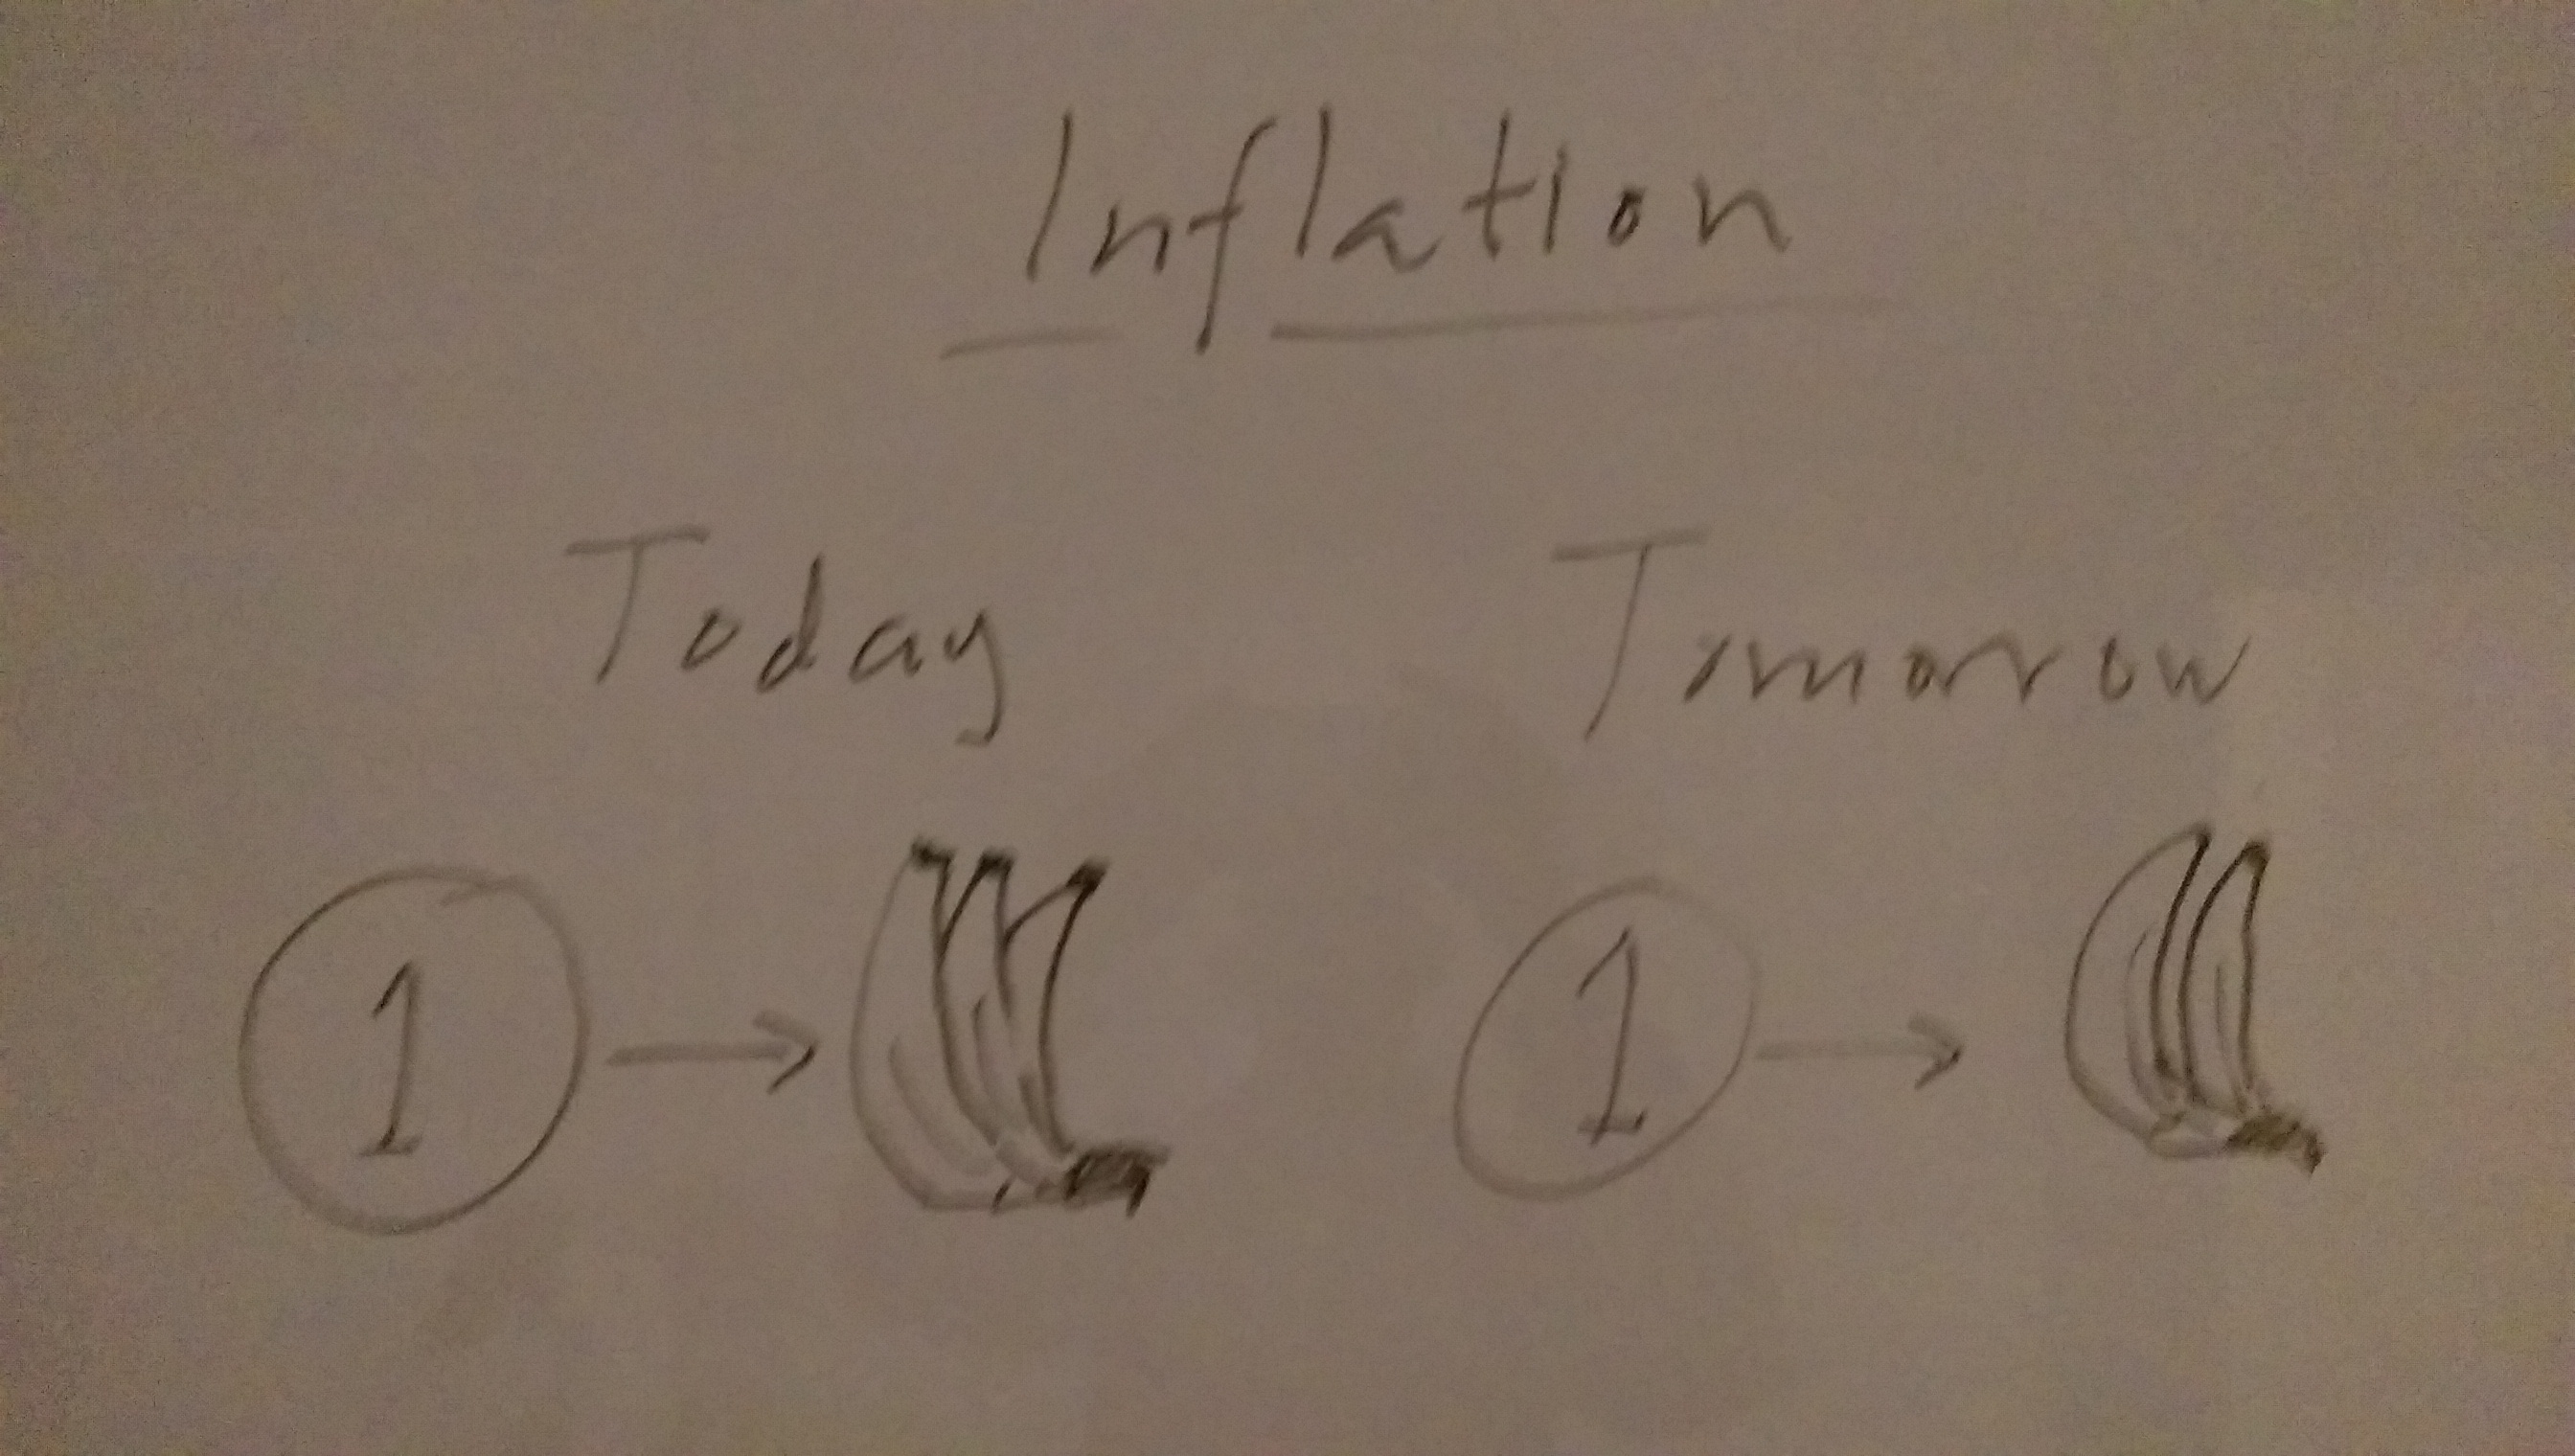 Inflation
Today Tomorrow
1 1